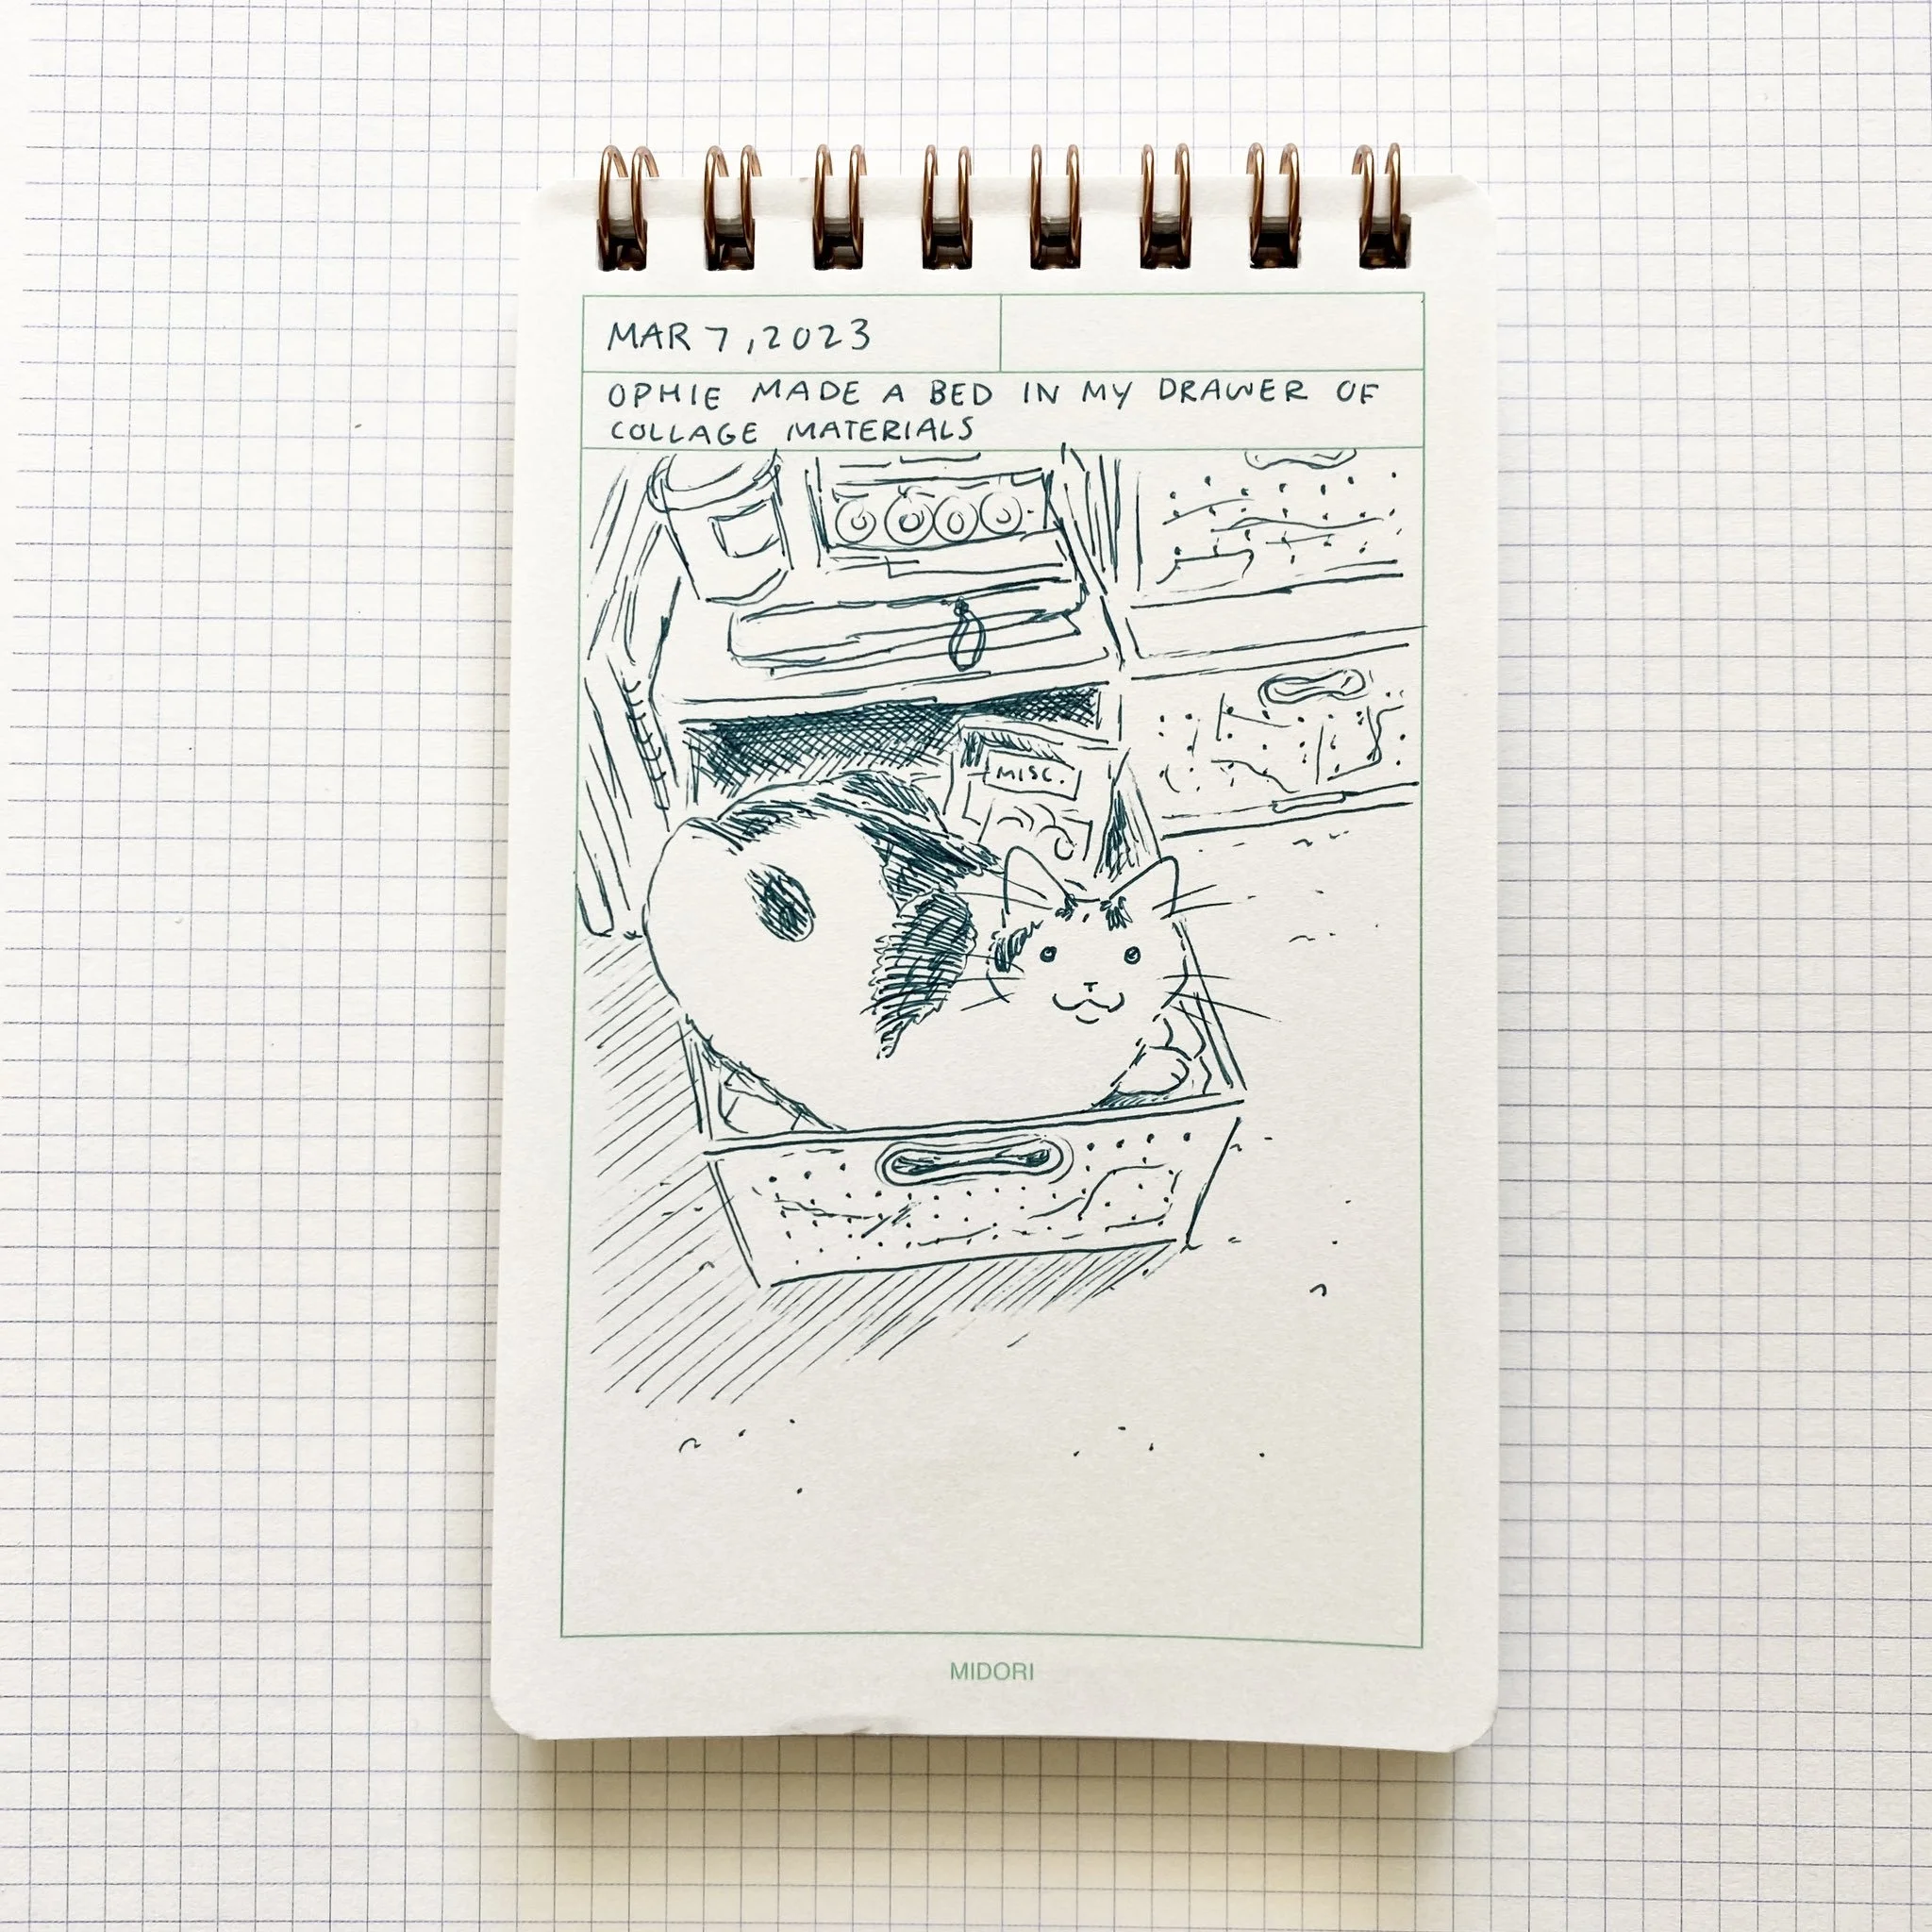 MAR 7, 2023
OPHIE MADE A BED IN MY DRAWER OF
COLLAGE MATERIALS
MISC.
MIDORI